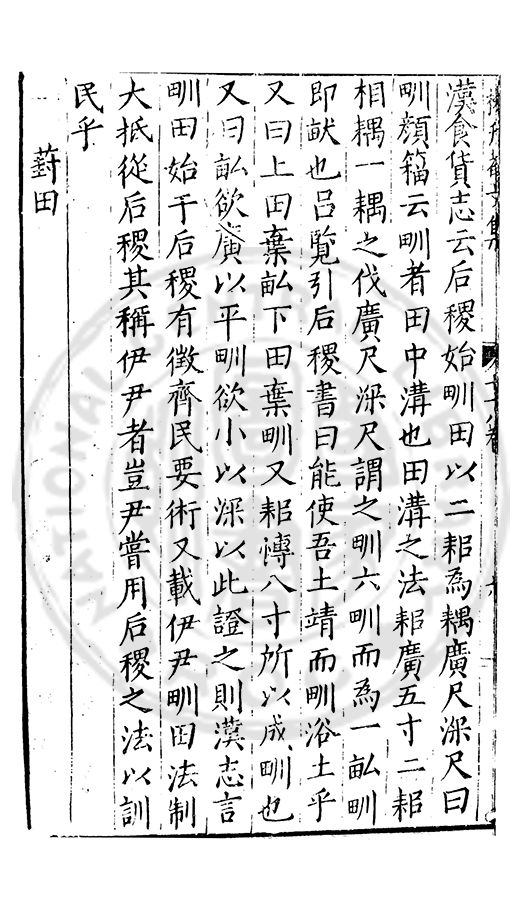 漢食貨志云后稷始甽田以二耜為耦廣尺深尺曰
甽顏籀云甽者田中溝也田溝之法耜廣五寸二耜
相耦一耦之伐廣尺深尺謂之甽六甽而為一畝甽
即畎也呂覽引后稷書曰能使吾土靖而甽浴土乎
又曰上田棄畝下田棄甽又耜愽八寸所以成甽也
又曰畝欲廣以平甽欲小以深以此證之則漢志言
甽田始于后稷有徵齊民要術又載伊尹甽田法制
大抵從后稷其稱伊尹者豈尹嘗用后稷之法以訓
民乎
葑田
NATIONAL CENTRAL LIBRARY